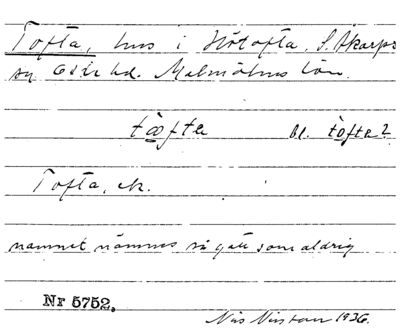 Tofta, hus i Hötofta, S. Åkarps
sn Oxie hd. Malmöhus län.
tæfta Bl. tofta?
Tofta, ek.
namnet nämnes så gått som aldrig
Nr 5752.
Nils Nilsson 1936.